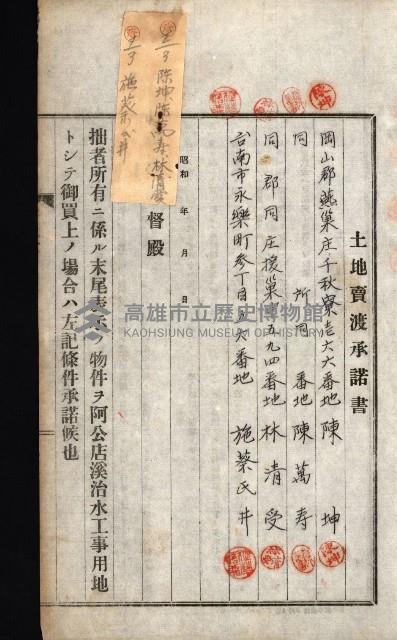 土地賣渡承諾書
岡山郡燕巢庄千秋寮壱六六番地 陳坤
同 所同番地 陳萬壽
同郡同庄援巢五九四番地 林清受
台南市永樂町参丁目 番地 施蔡氏井
昭和 年 月 日
督殿
拙者所有ニ係ル末尾表示ノ物件ヲ阿公店溪治水工事用地
トシテ御買上ノ場合ハ左記條件承諾候也
高雄市立歷史博物館
KAOHSIUNG MUSEUM OF HISTORY